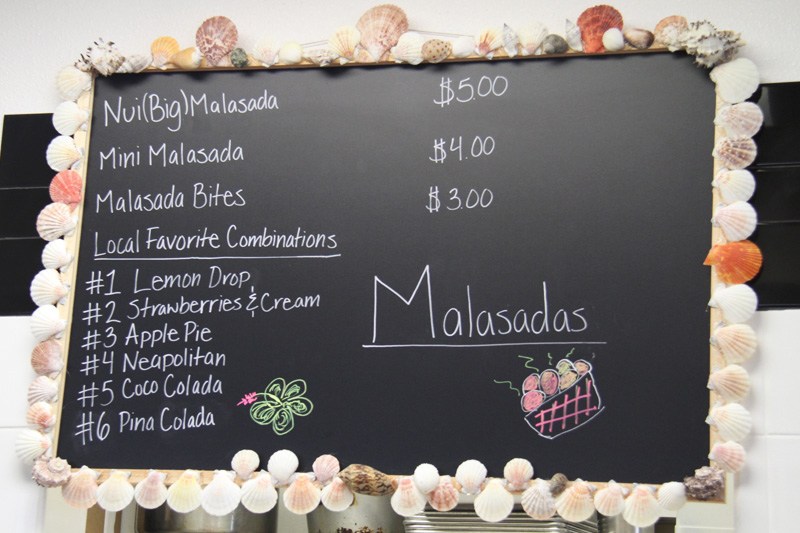 Nui(Big)Malasada $5.00
Mini Malasada $4.00
Malasada Bites $3.00
Local Favorite Combinations
#1 Lemon Drop
#2 Strawberries & Cream
#3 Apple Pie
#4 Neapolitan
#5 Coco Colada
#6 Pina Colada
Malasadas